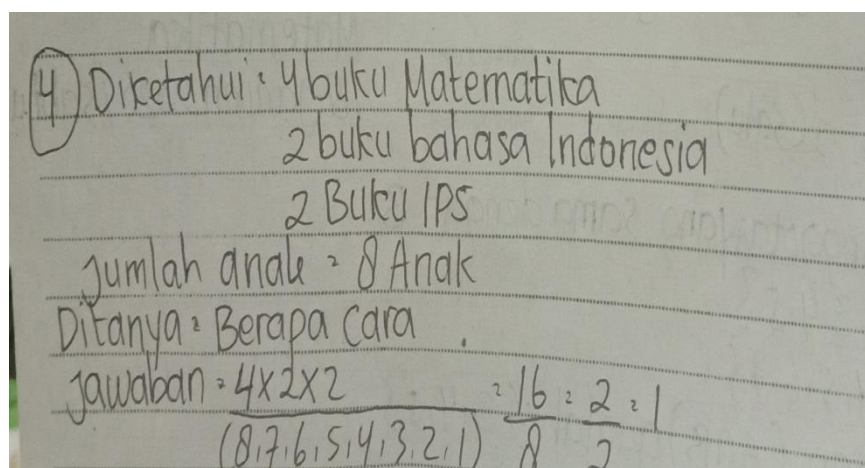 4) Diketahui : 4 buku Matematika
2 buku bahasa Indonesia
2 Buku IPS
Jumlah anak = 8 Anak
Ditanya = Berapa Cara .
Jawaban = 4x2x2 = 16 = 2 = 1
(8,7,6,5,4,3,2,1) 8 2